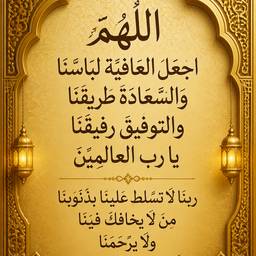 اللَّهُمَّ
اجعَل العَافيَّة لبَاسَنَا
وَالسَّعَادَةَ طَريقَنَا
والتوفيقَ رفيقَنَا
يا رب العالميِّنَ
ربنَا لَا تسَّلط عَلينَا بذَنَوبنَا
مِنَ لَا يخافكَ فيَنَا
ولَا يرَحَمَنَا